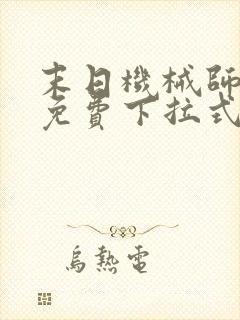 末日機械師
免費下拉式
烏熱電